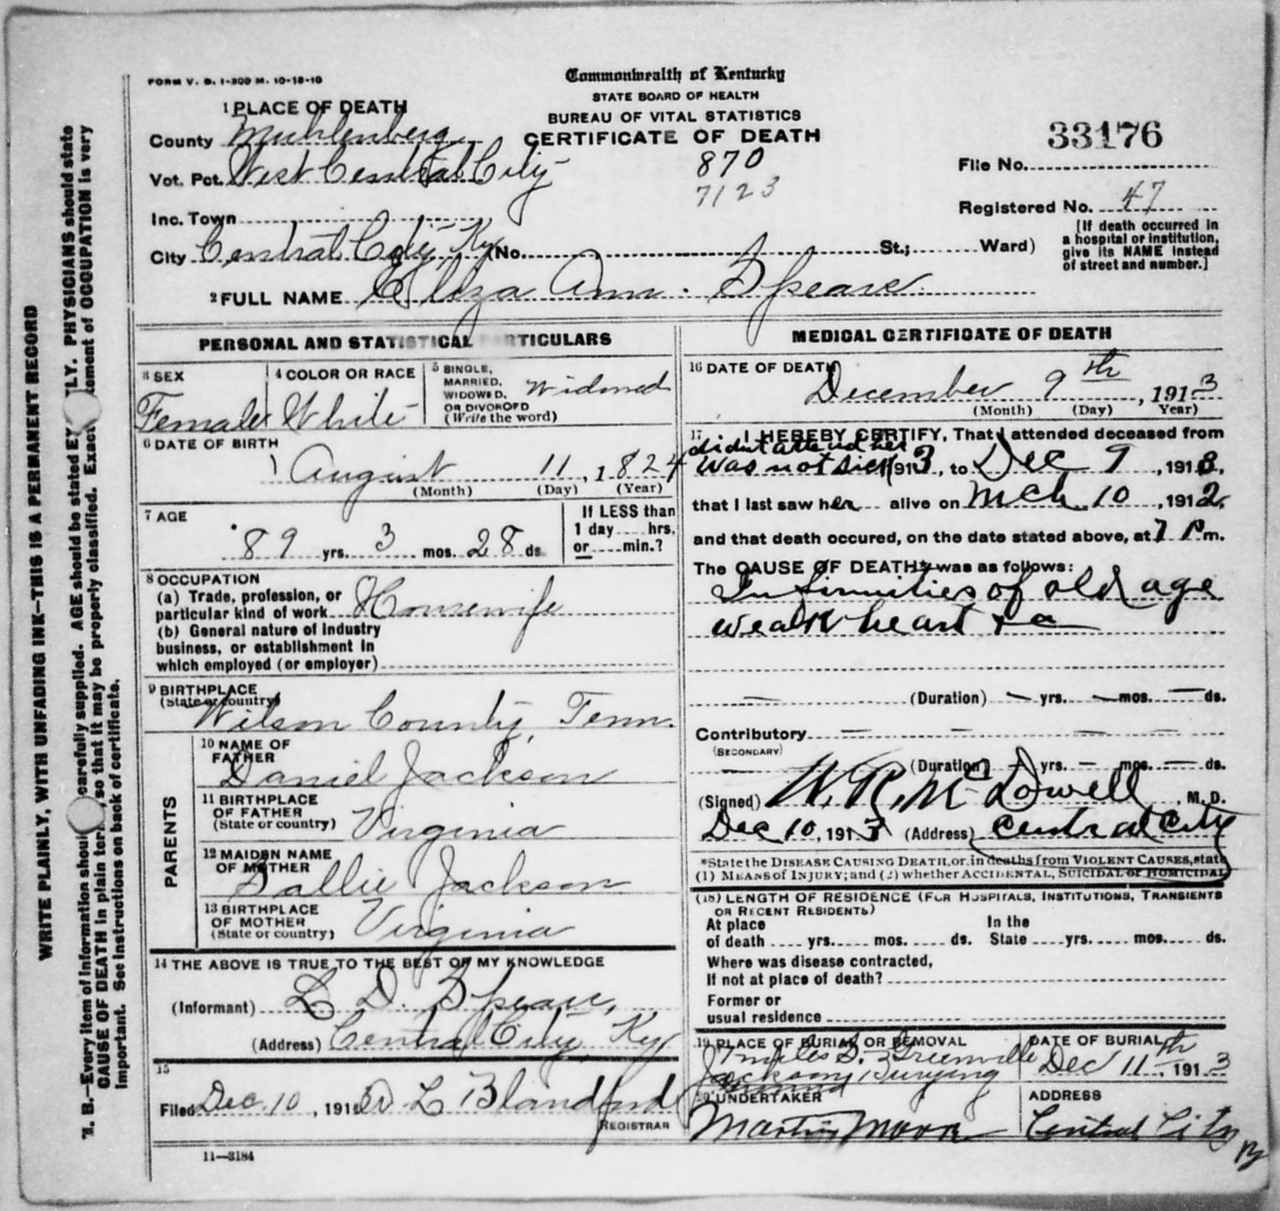 FORM V. S. 1-300 M. 10-18-10
Commonwealth of Kentucky
STATE BOARD OF HEALTH
BUREAU OF VITAL STATISTICS
CERTIFICATE OF DEATH
1 PLACE OF DEATH
County Muhlenberg
Vot. Pct. West Central City
Inc. Town
City Central City, Ky (No. St.; Ward)
870
7123
33176
File No.
Registered No. 47
[If death occurred in
a hospital or institution,
give its NAME instead
of street and number.]
2 FULL NAME Eliza Ann Speare
PERSONAL AND STATISTICAL PARTICULARS
3 SEX
Female
4 COLOR OR RACE
White
5 SINGLE,
MARRIED,
WIDOWED,
OR DIVORCED
(Write the word)
Widowed
6 DATE OF BIRTH
August 11, 1824
(Month) (Day) (Year)
7 AGE
89 yrs. 3 mos. 28 ds.
If LESS than
1 day hrs.
or min.?
8 OCCUPATION
(a) Trade, profession, or
particular kind of work Housewife
(b) General nature of industry
business, or establishment in
which employed (or employer)
9 BIRTHPLACE
(State or country)
Wilson County, Tenn.
PARENTS
10 NAME OF
FATHER
Daniel Jackson
11 BIRTHPLACE
OF FATHER
(State or country)
Virginia
12 MAIDEN NAME
OF MOTHER
Sallie Jackson
13 BIRTHPLACE
OF MOTHER
(State or country)
Virginia
14 THE ABOVE IS TRUE TO THE BEST OF MY KNOWLEDGE
(Informant) L. D. Speare,
(Address) Central City, Ky
15
Filed Dec 10, 191 L Blandford
REGISTRAR
11—3184
MEDICAL CERTIFICATE OF DEATH
16 DATE OF DEATH
December 9th, 1913
(Month) (Day) Year)
17 I HEREBY CERTIFY, That I attended deceased from
didn't attend her
was not sick 1913, to Dec 9, 1913,
that I last saw her alive on Mch 10, 1912,
and that death occured, on the date stated above, at 7 P m.
The CAUSE OF DEATH* was as follows:
Infirmities of old age
weak heart + a
(Duration) yrs. mos. ds.
Contributory
(SECONDARY)
(Duration) yrs. mos. ds.
(Signed) W. R. McDowell, M. D.
Dec 10, 1913 (Address) Central City
*State the DISEASE CAUSING DEATH, or, in deaths from VIOLENT CAUSES, state
(1) MEANS of INJURY; and (2) whether ACCIDENTAL, SUICIDAL or HOMICIDAL
(18) LENGTH OF RESIDENCE (FOR HOSPITALS, INSTITUTIONS, TRANSIENTS
OR RECENT RESIDENTS)
At place
of death yrs. mos. ds.
In the
State yrs. mos. ds.
Where was disease contracted,
If not at place of death?
Former or
usual residence
19 PLACE OF BURIAL OR REMOVAL
7 miles S. Greenville
Jackson Burying
DATE OF BURIAL
Dec 11th, 1913
20 UNDERTAKER
Martin Moore
ADDRESS
Central City Ky
WRITE PLAINLY, WITH UNFADING INK—THIS IS A PERMANENT RECORD
N. B.—Every item of information should carefully supplied. AGE should be stated EX LY. PHYSICIANS should state
CAUSE OF DEATH in plain ter , so that it may be properly classified. Exact tement of OCCUPATION is very
important. See instructions on back of certificate.